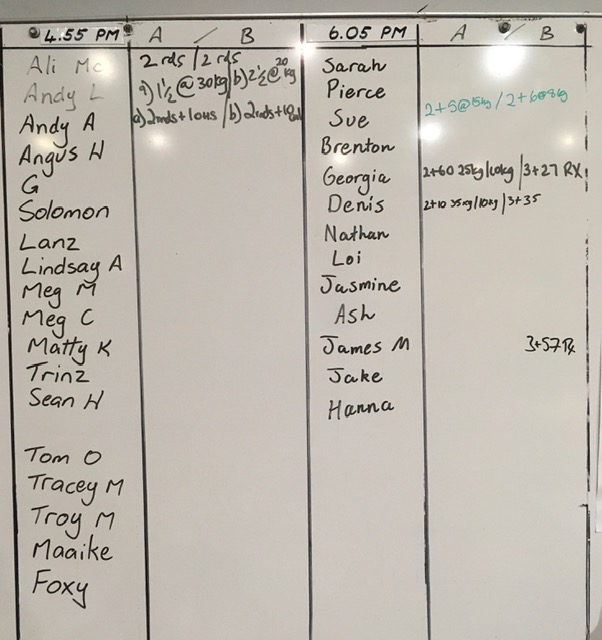 4.55 PM A / B 6.05 PM A / B
Ali Mc 2 rds / 2 rds Sarah
Andy L a) 1½ @ 30kg / b) 2½ @ 20 kg Pierce
Andy A a) 2rnds + 10us / b) 2rnds + Sue 2+5@15kg / 2+60@8kg
Angus H Brenton
G Georgia 2+60 25kg/10kg / 3+27 RX
Solomon Denis 2+10 35kg/10kg / 3+35
Lanz Nathan
Lindsay A Loi
Meg M Jasmine
Meg C Ash
Matty K James M 3+57 Rx
Trinz Jake
Sean H Hanna
Tom O
Tracey M
Troy M
Maaike
Foxy